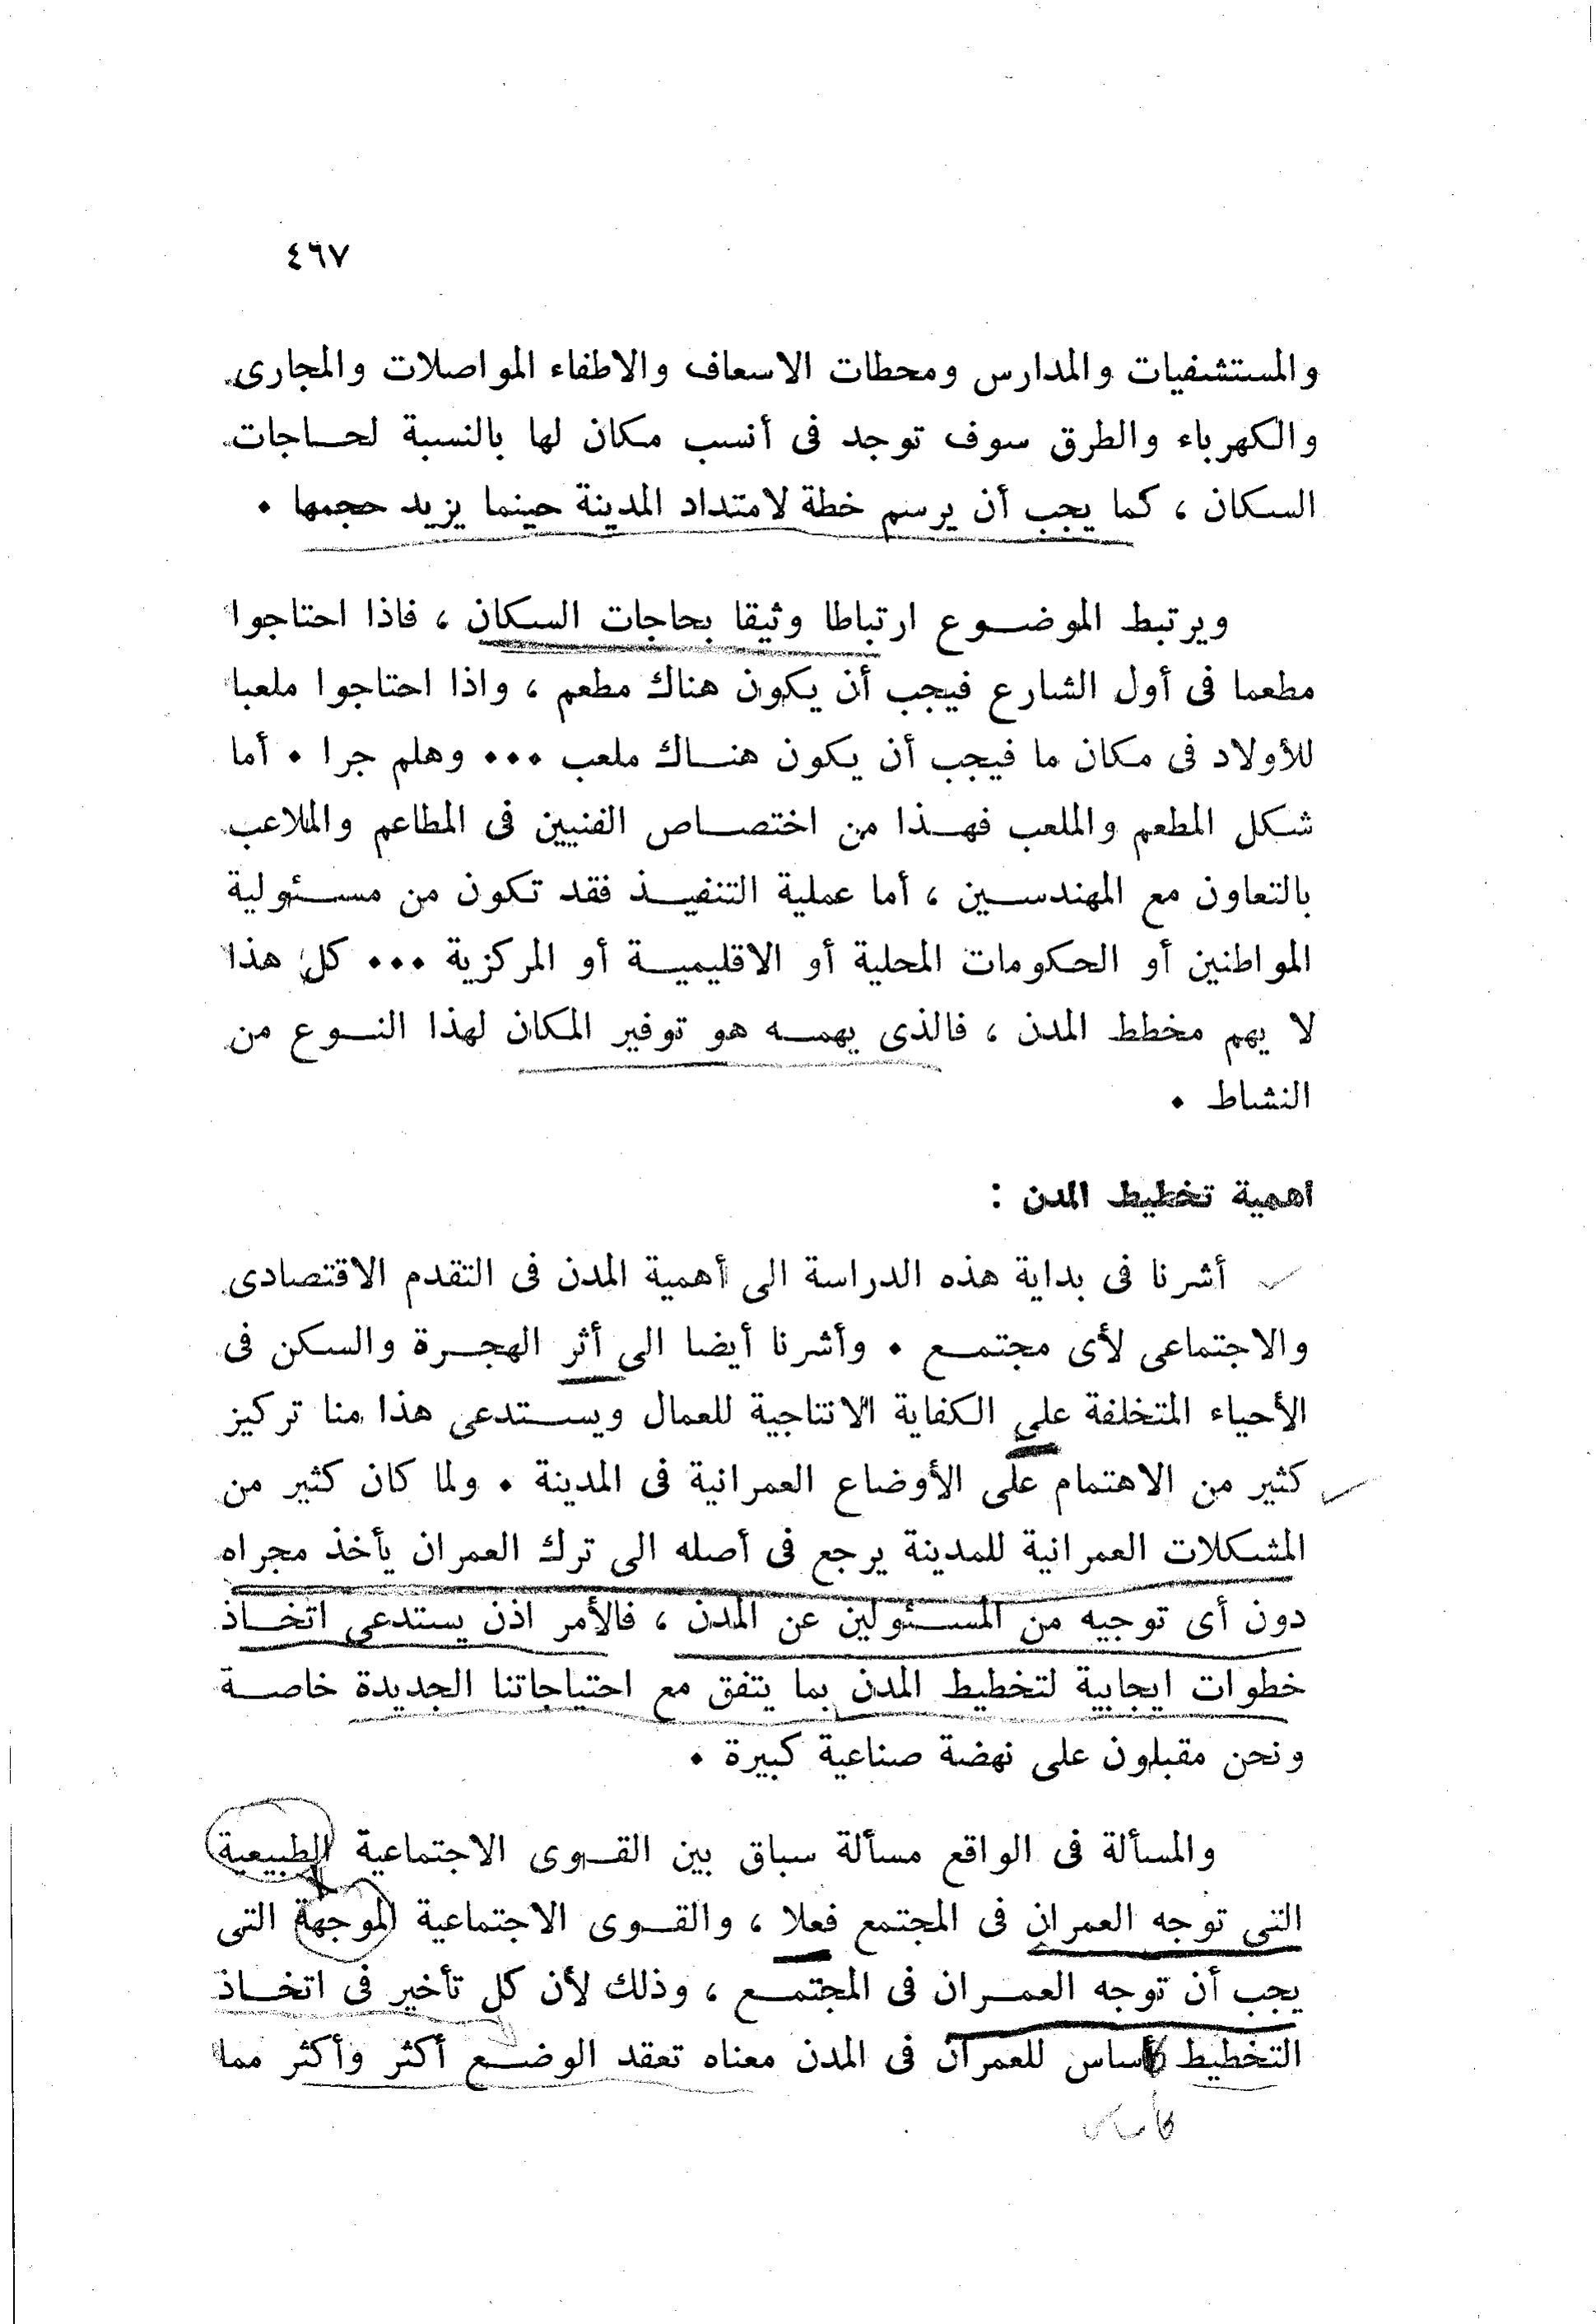 ٤٦٧
والمستشفيات والمدارس ومحطات الاسعاف والاطفاء المواصلات والمجارى
والكهرباء والطرق سوف توجد فى أنسب مكان لها بالنسبة لحاجات
السكان ، كما يجب أن يرسم خطة لامتداد المدينة حينما يزيد حجمها ٠
ويرتبط الموضوع ارتباطا وثيقا بحاجات السكان ، فاذا احتاجوا
مطعما فى أول الشارع فيجب أن يكون هناك مطعم ، واذا احتاجوا ملعبا
للأولاد فى مكان ما فيجب أن يكون هناك ملعب ٠٠٠ وهلم جرا ٠ أما
شكل المطعم والملعب فهذا من اختصاص الفنيين فى المطاعم والملاعب
بالتعاون مع المهندسين ، أما عملية التنفيذ فقد تكون من مسئولية
المواطنين أو الحكومات المحلية أو الاقليمية أو المركزية ٠٠٠ كل هذا
لا يهم مخطط المدن ، فالذى يهمه هو توفير المكان لهذا النوع من
النشاط ٠
أهمية تخطيط المدن :
أشرنا فى بداية هذه الدراسة الى أهمية المدن فى التقدم الاقتصادى
والاجتماعى لأى مجتمع ٠ وأشرنا أيضا الى أثر الهجرة والسكن فى
الأحياء المتخلفة على الكفاية الانتاجية للعمال ويستدعى هذا منا تركيز
كثير من الاهتمام على الأوضاع العمرانية فى المدينة ٠ ولما كان كثير من
المشكلات العمرانية للمدينة يرجع فى أصله الى ترك العمران يأخذ مجراه
دون أى توجيه من المسئولين عن المدن ، فالأمر اذن يستدعى اتخاذ
خطوات ايجابية لتخطيط المدن بما يتفق مع احتياجاتنا الجديدة خاصة
ونحن مقبلون على نهضة صناعية كبيرة ٠
والمسألة فى الواقع مسألة سباق بين القوى الاجتماعية الطبيعية
التى توجه العمران فى المجتمع فعلا ، والقوى الاجتماعية الموجهة التى
يجب أن توجه العمران فى المجتمع ، وذلك لأن كل تأخير فى اتخاذ
التخطيط كأساس للعمران فى المدن معناه تعقد الوضع أكثر وأكثر مما
كأساس